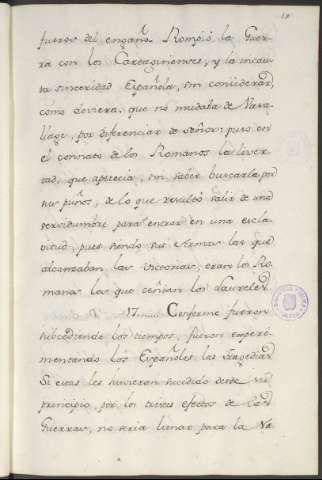 fueros del engaño. Rompió la Guer-
ra con los Cartaginienses, y la incau-
ta sinceridad Española, sin considerar,
como deviera, que no mudaba de Vasa-
llage, por diferenciar de señor: puso en
el connato de los Romanos la liver-
tad, que apetecia, sin saber buscarla por
sus puños, de lo que resultó salir de una
servidumbre para entrar en una escla-
vitud, pues siendo sus Armas las que
alcanzaban las victorias, eran las Ro-
manas las que ceñian los Laureles.
17. Conforme fueron
subcediendo los tiempos, fueron experi-
mentando los Españoles las tragedias.
Si estas les huvieran sucedido desde su
principio, por los tristes efectos de las
Guerras, no seria lunar para la Na-